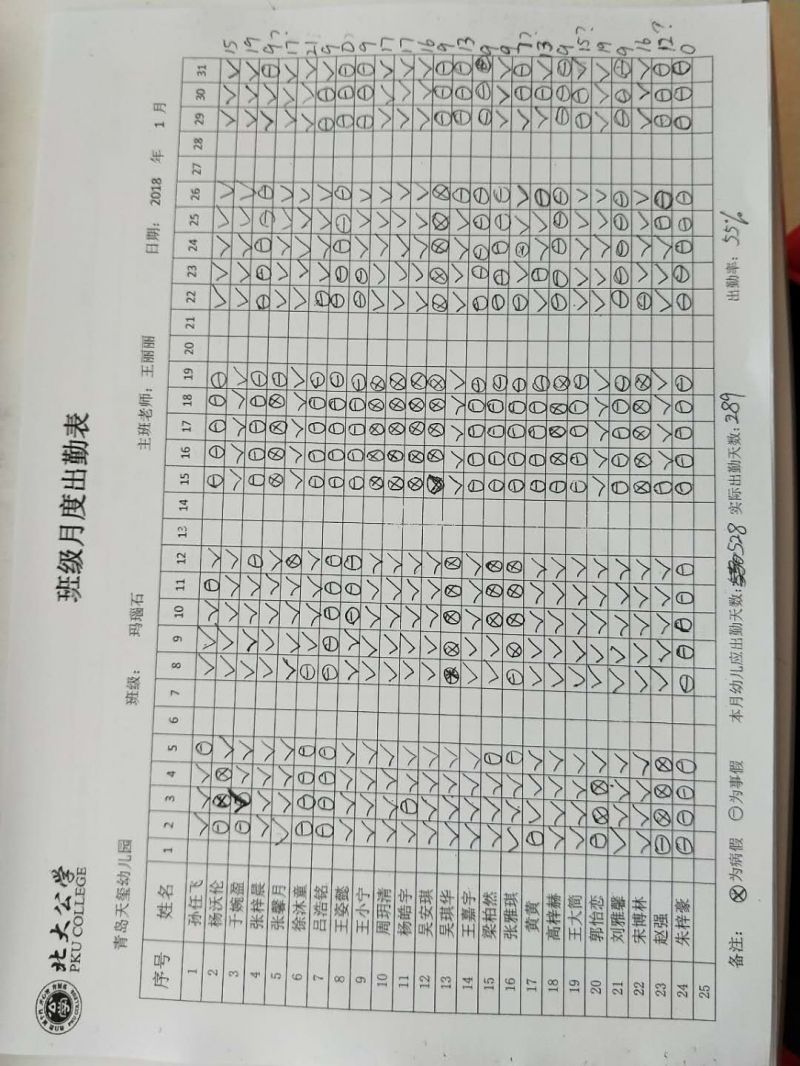 北大公学
PKU COLLEGE
班级月度出勤表
青岛天玺幼儿园 班级: 玛瑙石 主班老师: 王丽丽 日期: 2018 年 1 月
序号 姓名 1 2 3 4 5 6 7 8 9 10 11 12 13 14 15 16 17 18 19 20 21 22 23 24 25 26 27 28 29 30 31
1 孙任飞 ✓ ✓ ✓ ⊖ ✓ ✓ ✓ ⊖ ✓ ⊖ ⊖ ⊖ ⊖ ⊖ ✓ ✓ ✓ ✓ ✓ ✓ ✓ ✓ 15
2 杨沃伦 19
3 于婉盈 9?
4 张梓晨 17
5 张馨月 21
6 徐沐童 9
7 吕浩铭 0
8 王姿懿 9
9 王小宁 17
10 周玥清 17
11 杨皓宇 16
12 吴安琪 9
13 吴琪华 13
14 王嘉宇 9
15 梁柏然 9
16 张雅琪 7?
17 黄黄 13
18 高梓赫 9
19 王大简 15?
20 郭怡恋 19
21 刘雅馨 9
22 宋博林 16
23 赵强 12?
24 朱梓豪 0
25
备注: ⊗为病假 ⊖为事假 本月幼儿应出勤天数: 528 实际出勤天数: 289 出勤率: 55%